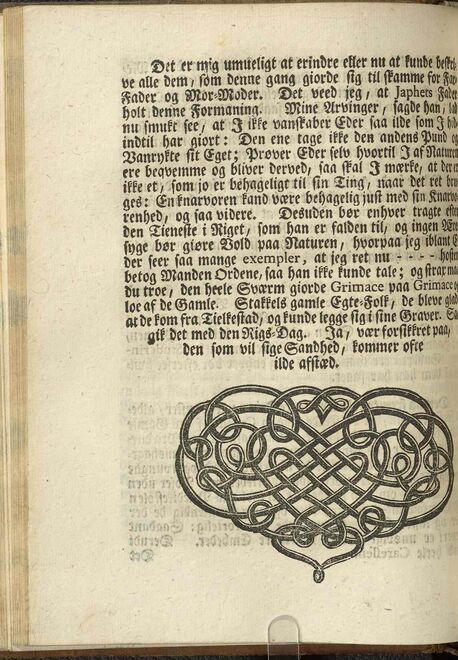 Det er mig umueligt at erindre eller nu at kunde beskri-
ve alle dem, som denne gang giorde sig til skamme for Far-
Fader og Mor-Moder. Det veed jeg, at Japhets Fader
holt denne Formaning. Mine Arvinger, sagde han, lad
nu smukt see, at J ikke vanskaber Eder saa ilde som J hid
indtil har giort: Den ene tage ikke den andens Pund og
Vanrykte sit Eget; Prøver Eder selv hvortil J af Naturen
ere beqvemme og bliver derved, saa skal J mærke, at der er
ikke et, som jo er behageligt til sin Ting, naar det ret bru-
ges: En knarvoren kand være behagelig just med sin Knarvo-
renhed, og saa videre. Desuden bør enhver tragte efter
den Tieneste i Riget, som han er falden til, og ingen Ære
syge bør giøre Vold paa Naturen, hvorpaa jeg iblant E
der seer saa mange exempler, at jeg ret nu - - - - hosten
betog Manden Ordene, saa han ikke kunde tale; og strax maa
du troe, den heele Sværm giorde Grimace paa Grimace og
loe af de Gamle. Stakkels gamle Egte-Folk, de bleve glad
at de kom fra Tielkestad, og kunde legge sig i sine Graver. Saa
gik det med den Rigs-Dag. Ja, vær forsikkret paa,
den som vil sige Sandhed, kommer ofte
ilde afstæd.